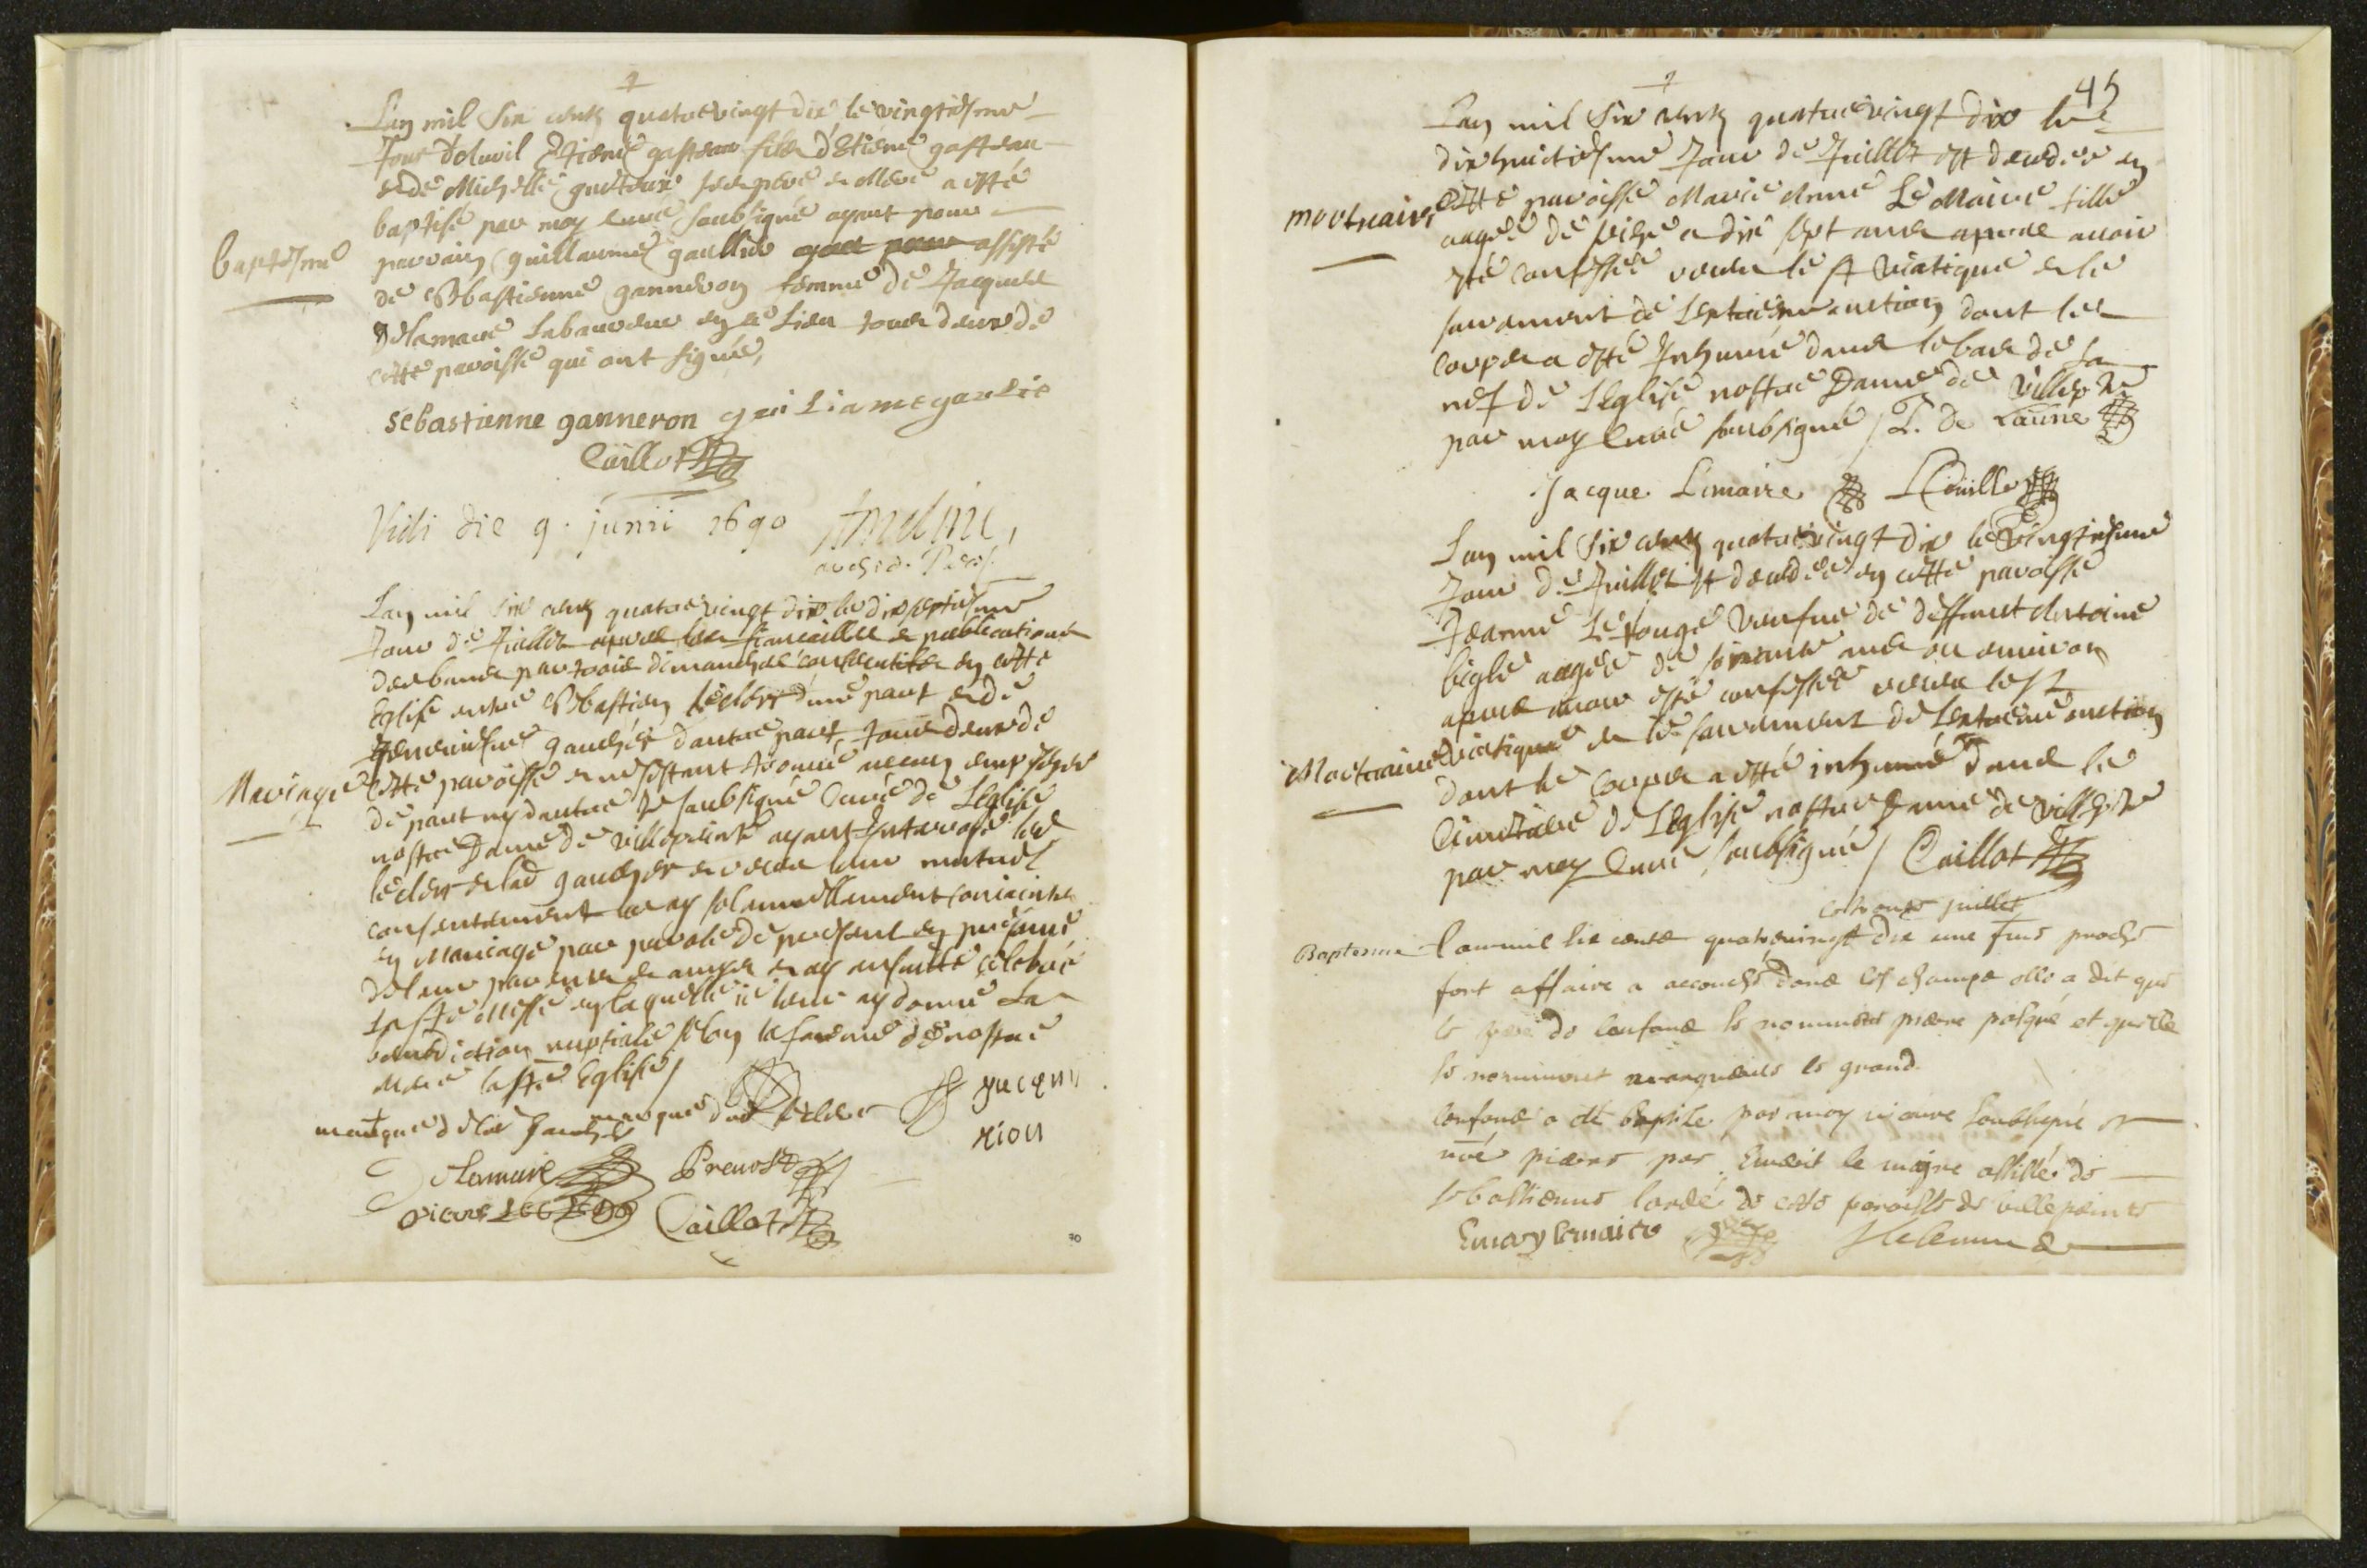 Lan mil six cents quatrevingt dix le vingtiesme
Jour d'avril Etiene gasteau fils d'Etiene gasteau
et de Michelle ses pere et Mere a esté
baptisé par moy Curé soubsigné ayant pour
baptesme
parrain guillaume gaullier assisté
de Sebastienne ganneron femme de Jacques
Delamare Laboureur en ce Lieu tous deux de
cette paroisse qui ont signés,
sebastienne ganneron guiliamegaulie
Caillot
Vidi die 9. junii 1690
Lan mil six cents quatrevingt dix le dixseptiesme
Jour de Juillet apres les fiancailles et publications
des bans par trois dimanches consecutifs en cette
Eglise entre Sebastien leclerc d'une part et de
Geneviefve gaucher d'autre part, tous deux de
Mariage
cette paroisse et ne s'estant trouvé aucun empeschement
de part ny d'autre Je soubsigné Curé de L'eglise
nostre Dame de Villepeinte ayant Interrogé led
leclerc et lad gaucher et receu leur mutuel
consentement les ay solemnellement conioints
en Mariage par parolle de present en presence
de leurs parens et amys et ay ensuitte celebré
la Ste Messe en laquelle ie leur ay donné La
benediction nuptiale selon la forme de nostre
Mere la Ste Eglise /
marque de lad gaucher marque dud leclerc
Delamare Prevost
Caillot
70
45
Lan mil six cents quatrevingt dix le
dixhuictiesme Jour de Juillet est decedée en
mortuaire
cette paroisse Marie Anne Le Maire fille
aagée de seize a dix sept ans apres avoir
esté confessée receu le St Viatique et le
sacrement de L'extreme onction dont le
corps a esté Inhumé dans le bas de la
nef de L'eglise nostre Dame de Villepte
par moy Curé soubsigné / T. de Laune
Jacque Lemaire Caillot
Lan mil six cents quatrevingt dix le Vingtiesme
Jour de Juillet est decedée en cette paroisse
Jeanne Le Rouge veufve de deffunct Antoine
bigle aagée de soixante ans ou environ
apres avoir esté confessée receu le St
Mortuaire
Viatique et le sacrement de L'extreme onction
dont le corps a esté inhumé dans le
Cimetiere de L'eglise nostre Dame de Villepte
par moy Curé soubsigné / Caillot
le trente juillet
Baptesme
l'an mil six cents quatrevingt dix une fme proche
fort affaire a accouché dans les champs elle a dit que
le pere de l'enfans se nommoit pierre pasqué et qu'elle
se nommoit marguerite le grand.
l'enfans a été baptisé par moy vicaire soubsigné et
nôé pierre par Emery le maire assisté de
sebastienne de cette paroisse de villepeinte
Emery lemaire